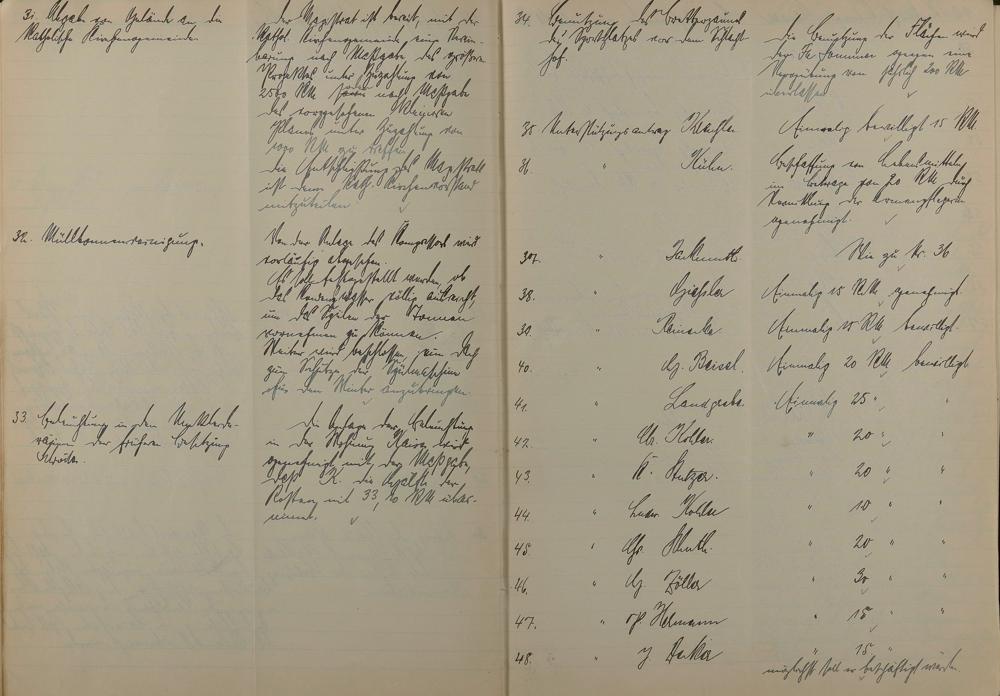 31. Abgabe von Gelände an die
Katholische Kirchengemeinde
der Magistrat ist bereit, mit der
Kathol. Kirchengemeinde eine Verein-
barung nach Maßgabe des größeren
Projektes unter Zuzahlung von
2500 RM nach Maßgabe
des vorgesehenen kleineren
Planes unter Zuzahlung von
1000 RM zu treffen
die Entschließung des Magistrats
ist dem Kath. Kirchenvorstand
mitzuteilen
32. Mülltonnenreinigung.
Von der Anlage des wird
vorläufig abgesehen.
Es soll festgestellt werden, ob
das Kondenzwasser völlig ausreicht,
um das Spülen der Tonnen
vornehmen zu können.
Weiter wird beschlossen, ein Dach
zum Schutze der Spülmaschine
für den Winter anzubringen.
33. Beleuchtung in den
der früheren Besitzung
die Anlage der Beleuchtung
in der Wohnung wird
genehmigt mit der Maßgabe,
daß K. die Hälfte der
Kosten mit 33,50 RM über-
nimmt.
34. Benutzung des
des Sportplatzes vor dem Schlacht-
hof.
die Benutzung der Fläche wird
der Fa. gegen eine
Vergütung von jährlich 200 RM
überlassen
35 Unterstützungsantrag
Einmalig bewilligt 15 RM
36. " Kühn.
Beschaffung von Lebensmitteln
im Betrage von 20 RM durch
Vermittlung der Armenpflegerin
genehmigt.
37. "
Wie zu Nr. 36
38. "
Einmalig 15 RM genehmigt.
39. " Reinecke
Einmalig 15 RM bewilligt.
40. " G. Beisel.
Einmalig 20 RM bewilligt
41. " Landgrebe
Einmalig 25 " "
42. " Ch. Koller.
" 20 " "
43. " K. Stutzer.
" 20 " "
44. " Ludw. Kohler
" 10 " "
45 " Chr.
" 20 " "
46. " G. Zöller
" 30 " "
47. " Hermann
" 15 " "
48. " J.
" 15 "
möglichst soll er beschäftigt werden